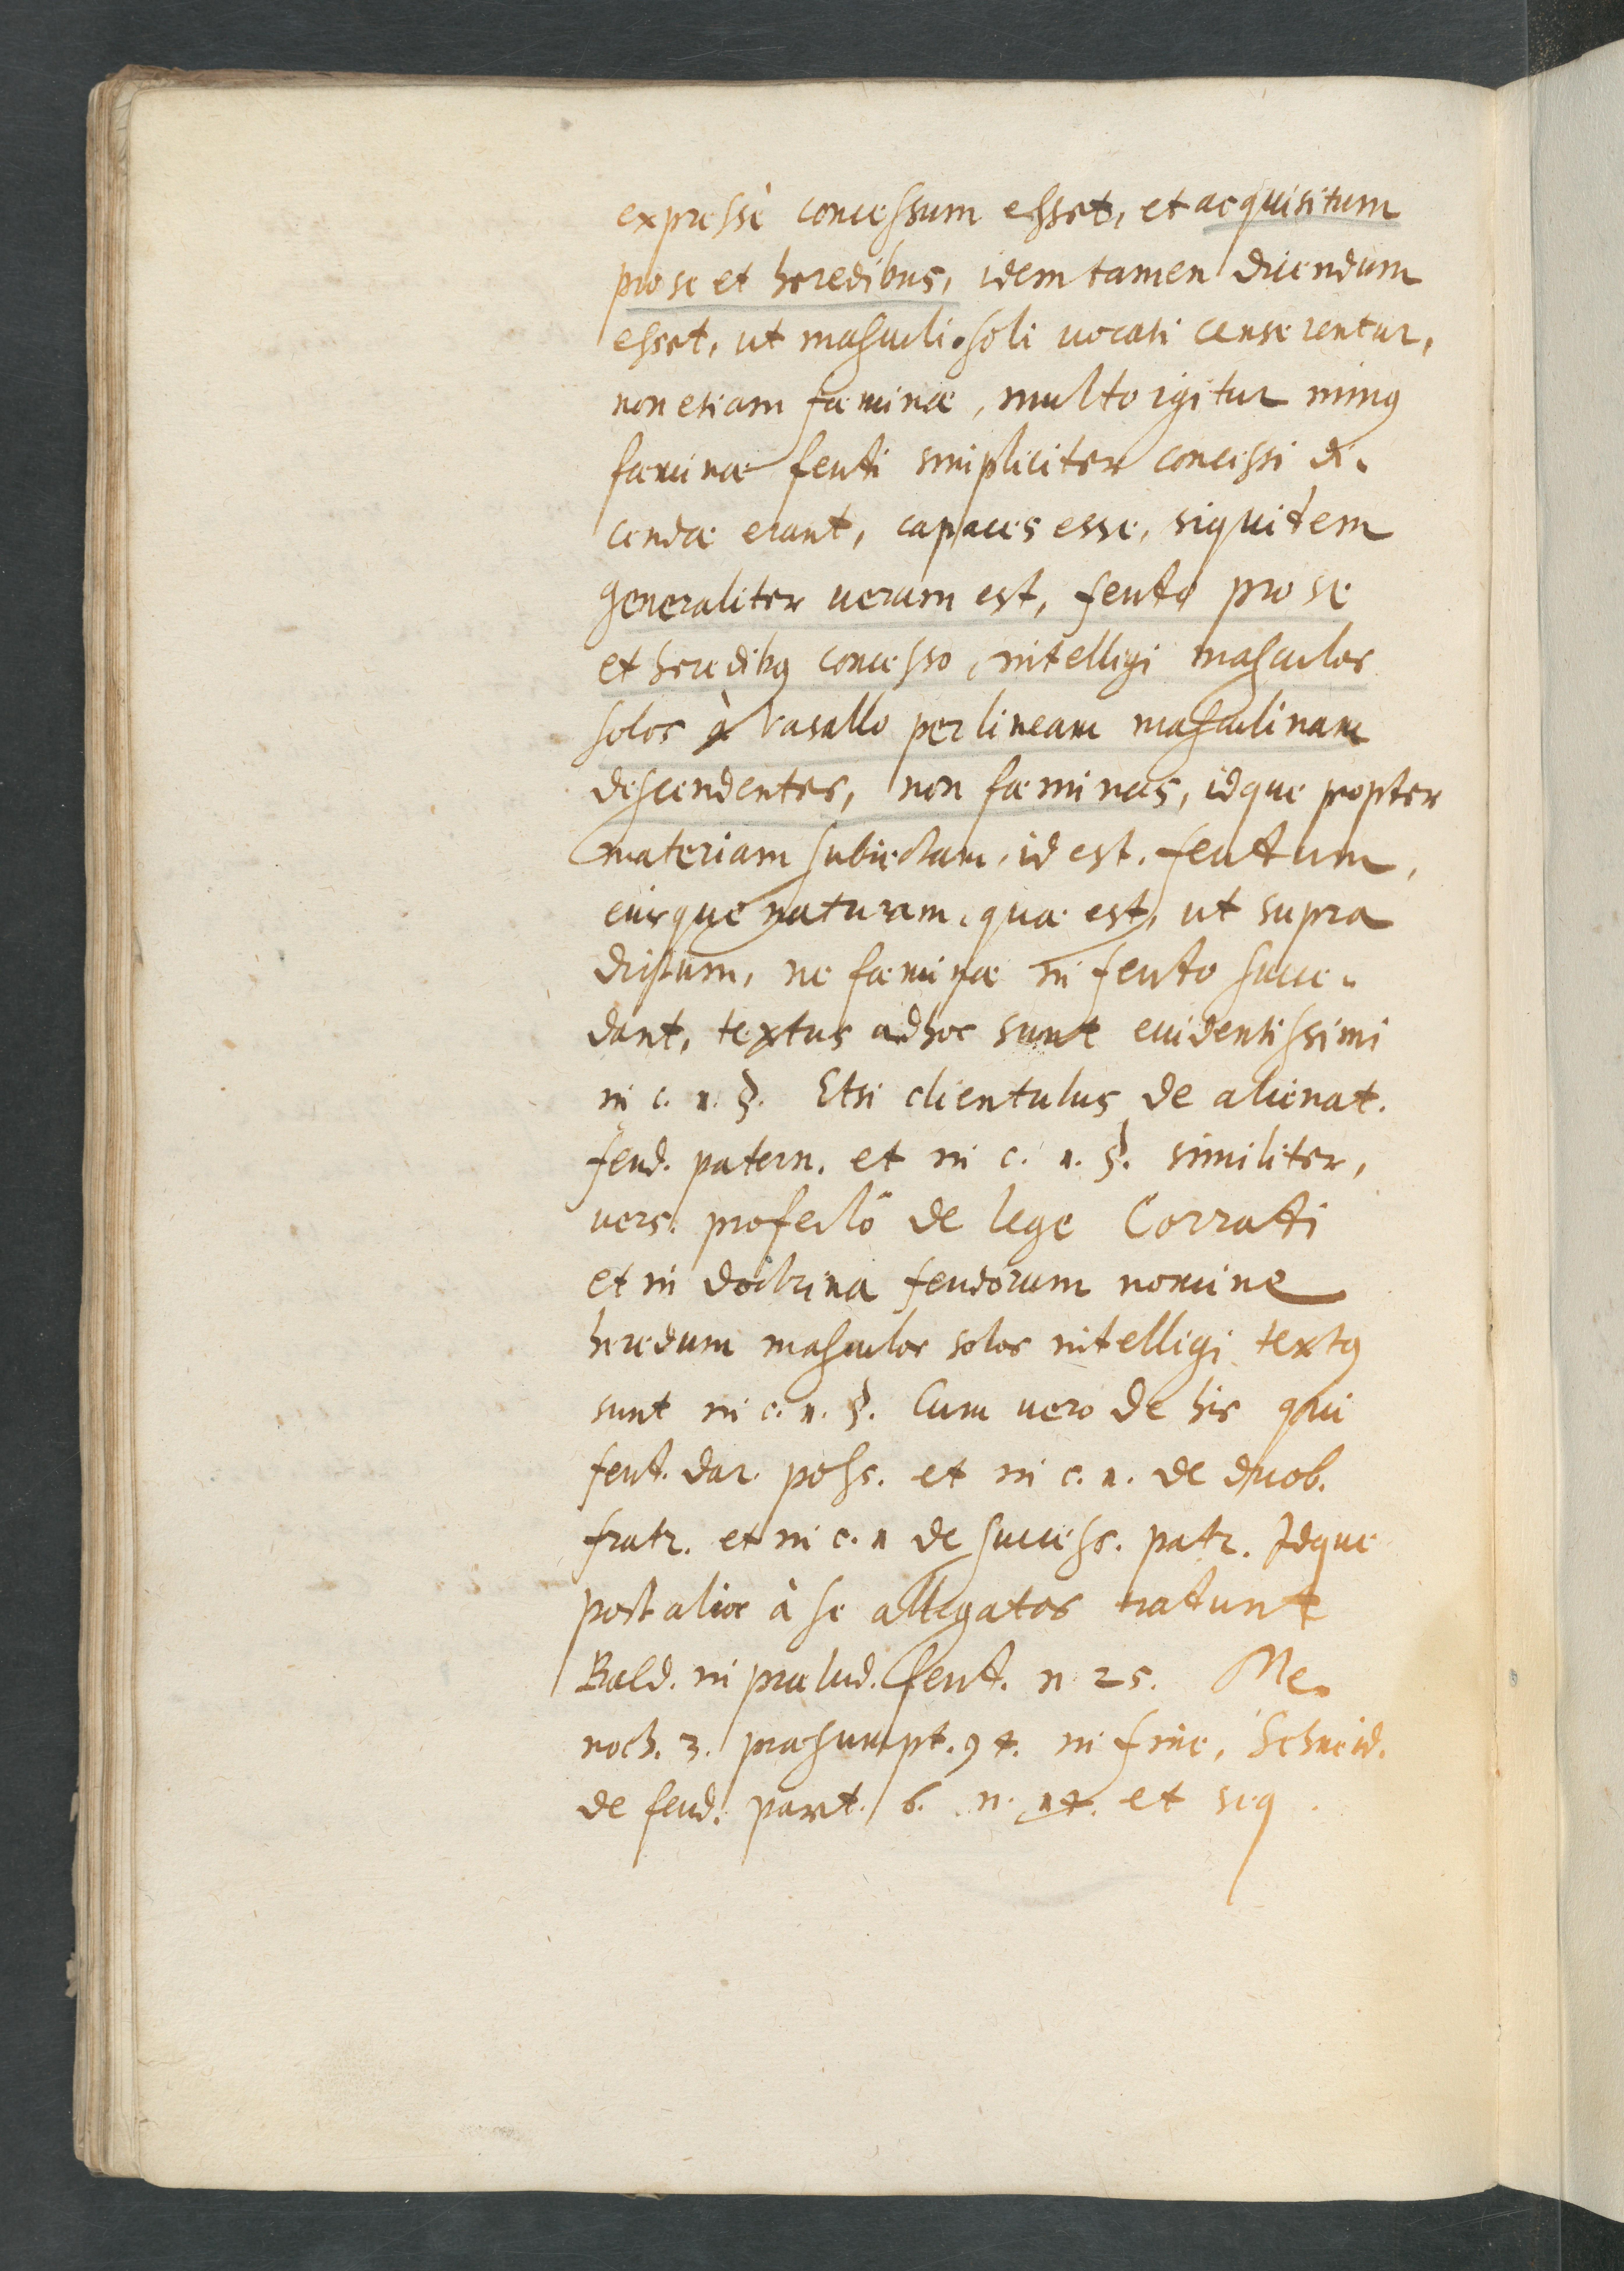 expressè concessum esset, et acquisitum
pro se et heredibus, idem tamen dicendum
esset, ut masculi soli vocati censerentur,
non etiam fæminæ, multo igitur minus
fæminæ feuti simpliciter concessi di-
cendæ erant, capaces esse, siquitem
generaliter verum est, feuto pro se
et heredibus concesso, intelligi masculos
solos à vasallo per lineam masculinam
descendentes, non fæminas, idque propter
materiam subiectam, id est. feutum,
eiusque naturam, quæ est, ut supra
dictum, ne fæminæ in feuto succe-
dant, textus ad hoc sunt evidentissimi
in c. 1. §. Etsi clientulus de alienat.
feud. patern. et in c. 1. §. similiter,
vers. profectò de lege Corrati
et in doctrina feudorum nomine
heredum masculos solos intelligi textus
sunt in c. 1. §. Cum vero de his qui
feut. dar. poss. et in c. 1. de duob.
fratr. et in c. 1 de success. patr. Idque
post alios à se allegatos tratunt
Bald. in prælud. feut. n 25. Me-
noch. 3. præsumpt. 94. in fine, Schneid.
de feud. part. 6. n. 14. et seq.